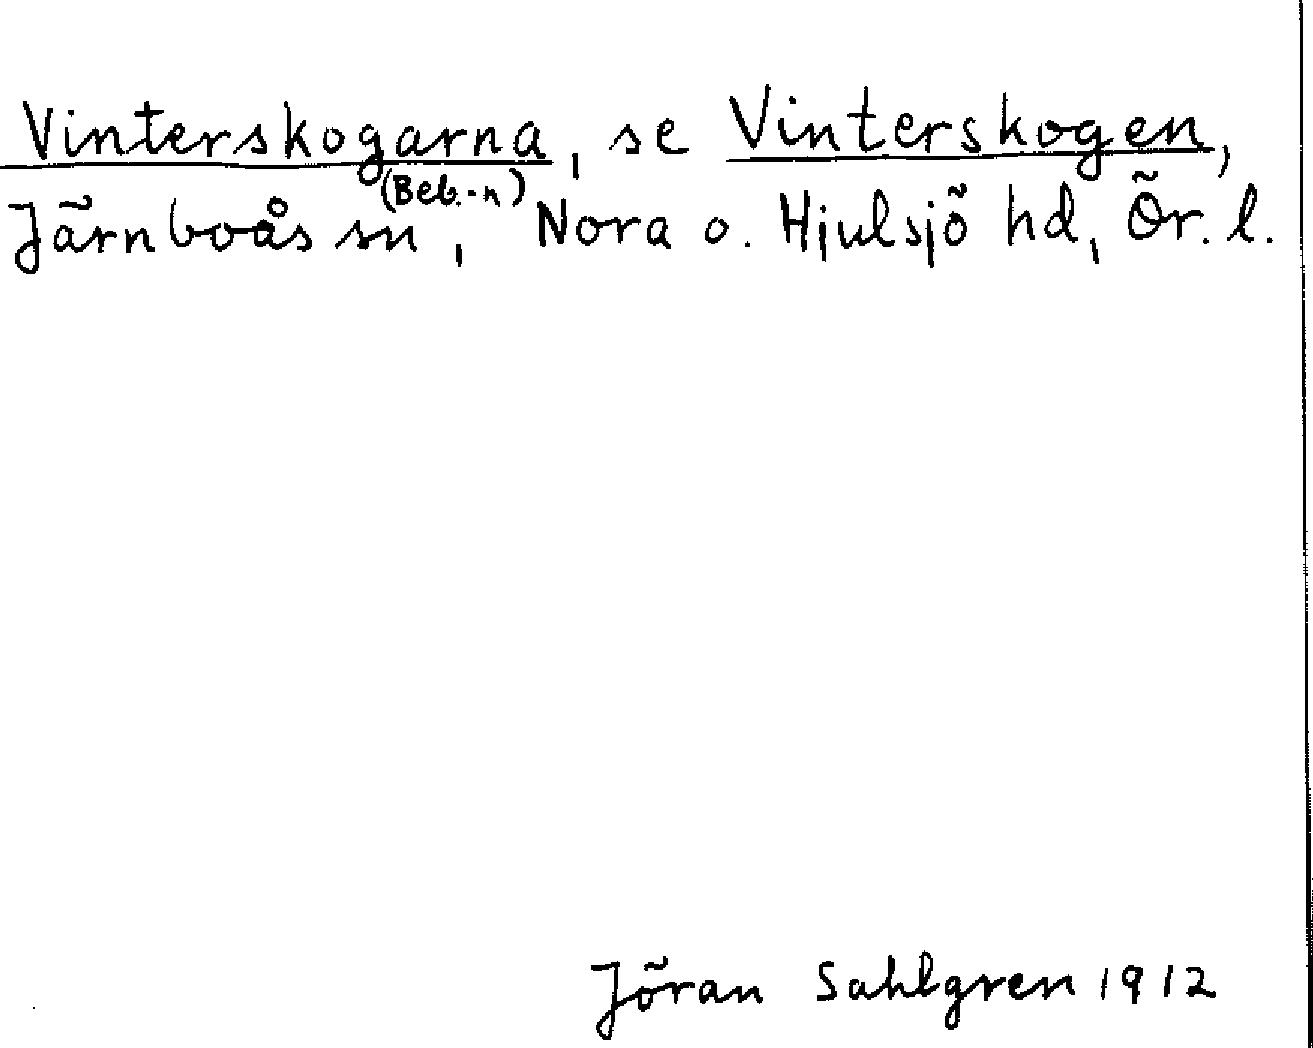 Vinterskogarna, se Vinterskogen,
(Beb.-n)
Järnboås sn, Nora o. Hjulsjö hd, Ör. l.
Jöran Sahlgren 1912